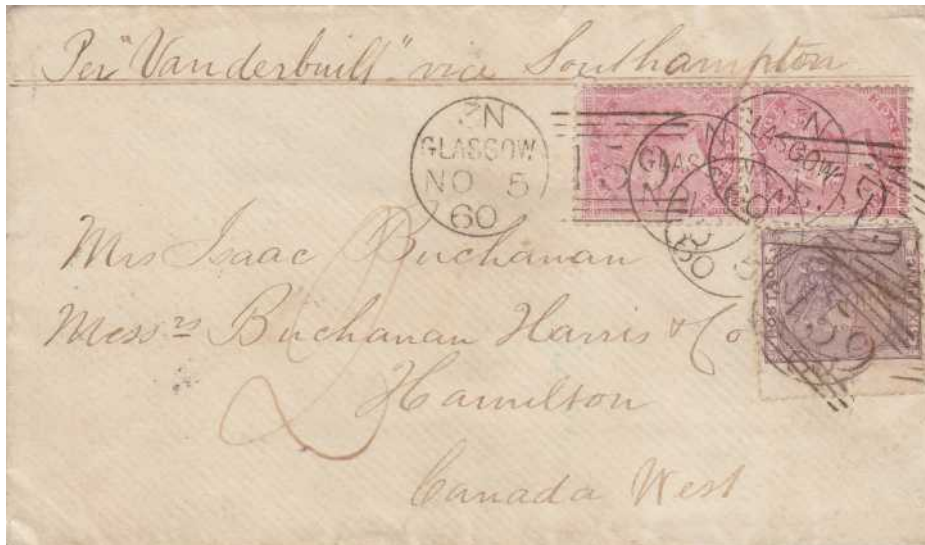 Per "Vanderbuilt" via Southampton
3N
GLASGOW
NO 5
60
159
GLASGOW
60
Mrs Isaac Buchanan
Messrs Buchanan Harris & Co
Hamilton
Canada West
2
POSTAGE